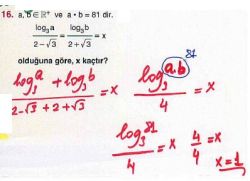 16. a, b ∈ ℝ⁺ ve a • b = 81 dir.
log₃a / 2 − √3 = log₃b / 2 + √3 = x
olduğuna göre, x kaçtır?
log₃a + log₃b / 2 − √3 + 2 + √3 = x
log₃ a.b / 4 = x
81
log₃ 81 / 4 = x
4 / 4 = x
x = 1